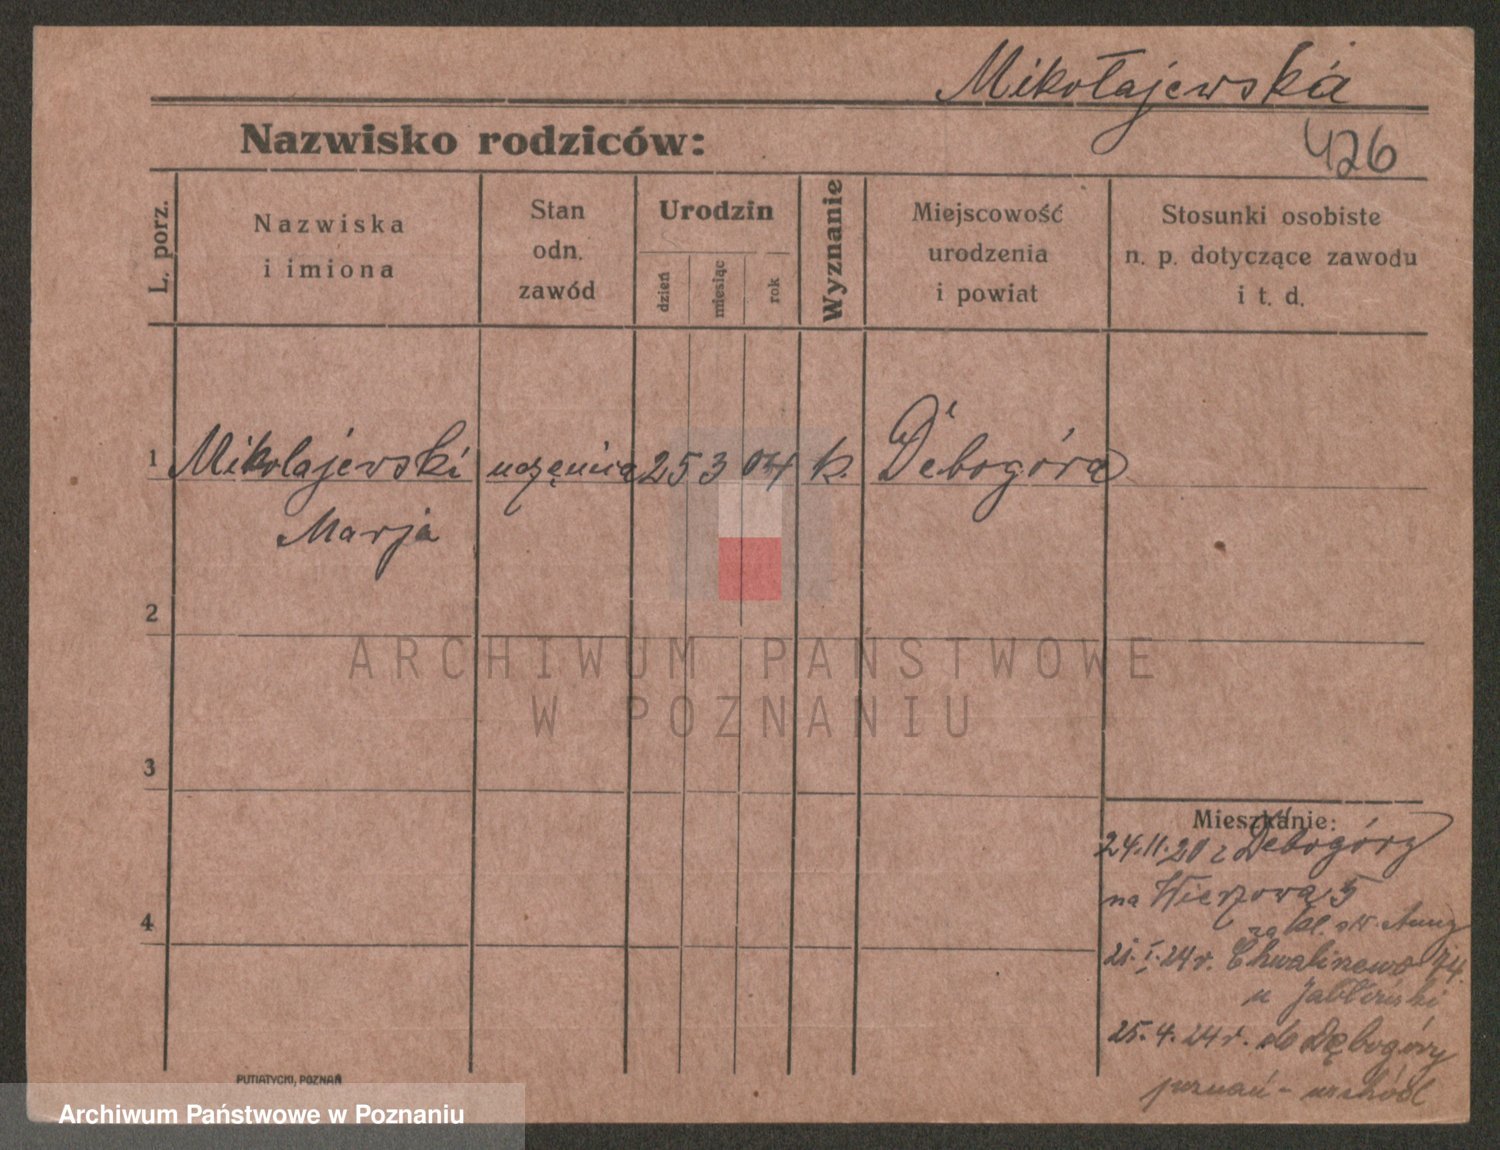 Mikołajewska
Nazwisko rodziców:
426
L. porz.
Nazwiska
i imiona
Stan
odn.
zawód
Urodzin
dzień
miesiąc
rok
Wyznanie
Miejscowość
urodzenia
i powiat
Stosunki osobiste
n. p. dotyczące zawodu
i t. d.
1 Mikołajewski uczenica 25 3 04 k. Debogóra
Marja
2
3
4
Mieszkanie:
24.11.20 z Debogóry
na Wieżowa 5
zakł. św. Anny
21.I.24 r. Chwaliszewo 74.
u Jabłński
25.4.24 r. do Dębogóry
poznań - wschód
ARCHIWUM PAŃSTWOWE
W POZNANIU
PUTIATYCKI, POZNAŃ
Archiwum Państwowe w Poznaniu